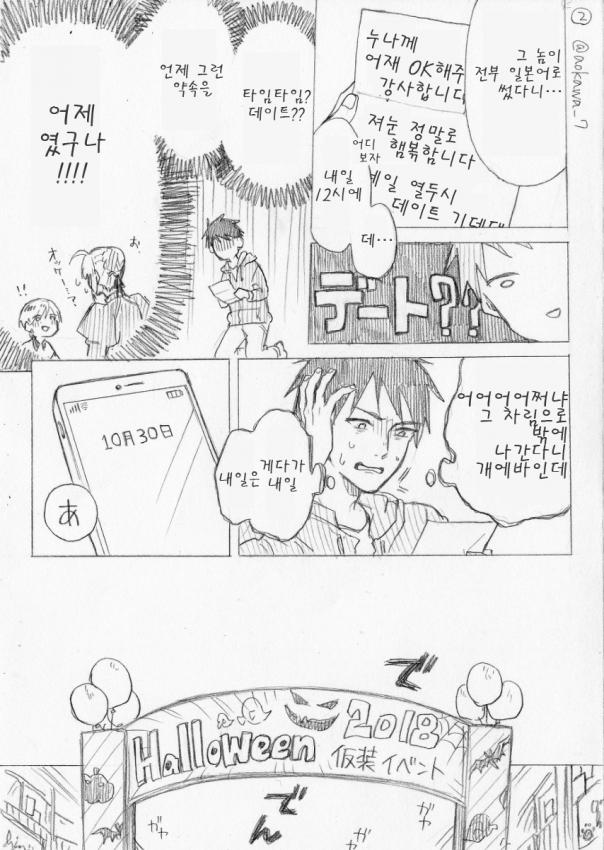 ②
@aokawa_7
그 놈이
전부 일본어로
썼다니...
누나께
어재 OK해주
감사합니다
져눈 정말로
햄복함니다
어디
보자
내일
12시에
데...
데일 열두시
데이트 기데대
デート??
타임타임?
데이트??
언제 그런
약속을
어제
였구나
!!!!
お
オッケー
!!
어어어어쩌냐
그 차림으로
밖에
나간다니
개에바인데
게다가
내일은 내일
10月30日
あ
ででん
Halloween 2018
仮装イベント
ガヤ
ガヤ
ガヤ